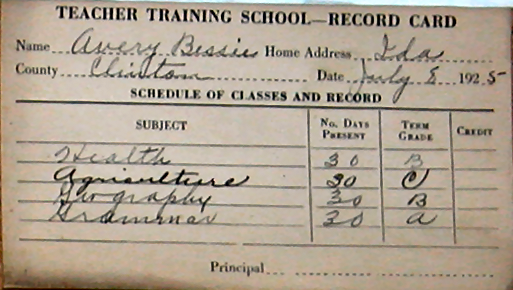 TEACHER TRAINING SCHOOL—RECORD CARD
Name Avery Bessie Home Address Ida
County Clinton Date July 8 1925
SCHEDULE OF CLASSES AND RECORD
SUBJECT No. Days Present Term Grade Credit
Health 30 B
Agriculture 30 C
Geography 30 B
Grammar 30 A
Principal